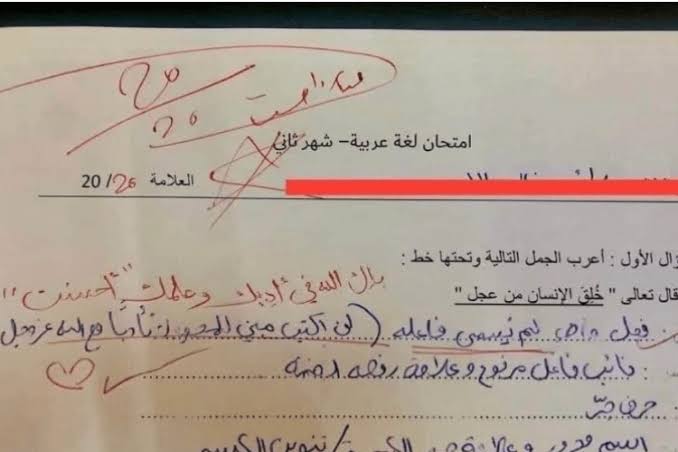 20
20
ممتاز أحسنت
امتحان لغة عربية – شهر ثاني
العلامة 20/20
زال الأول : أعرب الجمل التالية وتحتها خط :
بارك الله في أدبك وعلمك "أحسنت"
قال تعالى " خُلِقَ الإنسان من عجل "
فعل ماضٍ لم يسمى فاعله ( لن أكتب مبني للمجهول تأدباً مع الله عز وجل
: نائب فاعل مرفوع وعلامة رفعه الضمة
: حرف جرّ
اسم مجرور وعلامة جره الكسرة / تنوين الكسر